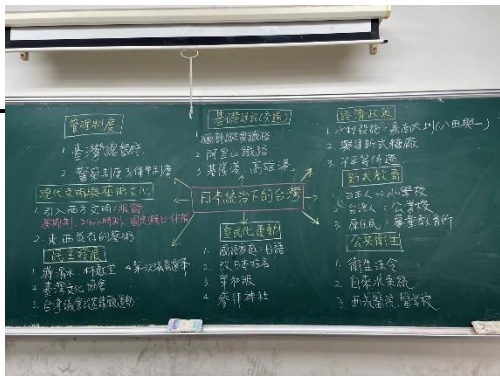 管理制度
1. 臺灣總督府
2. 警察制度與保甲制度
現代文明與藝術文化
1. 引入西方文明：
星期制、24小時制、
2. 東西並存的藝術
民主發展
1. 蔣渭水 林獻堂
2. 臺灣文化協會
3. 台灣議會設置請願運動
基礎建設(交通)
1. 縱貫鐵路
2. 阿里山鐵路
3. 基隆港、高雄港
日本統治下的台灣
皇民化運動
1. 國語家庭：日語
2. 改日本姓名
3. 穿和服
4. 參拜神社
經濟政策
1. 水利設施：嘉南大圳(八田與一)
2. 興建新式糖廠
3.
新式教育
1. 日本人：小學校
2. 台灣人：公學校
3. 原住民：蕃童教育所
公共衛生
1. 衛生法令
2. 自來水系統
3. 西式醫院、醫學校